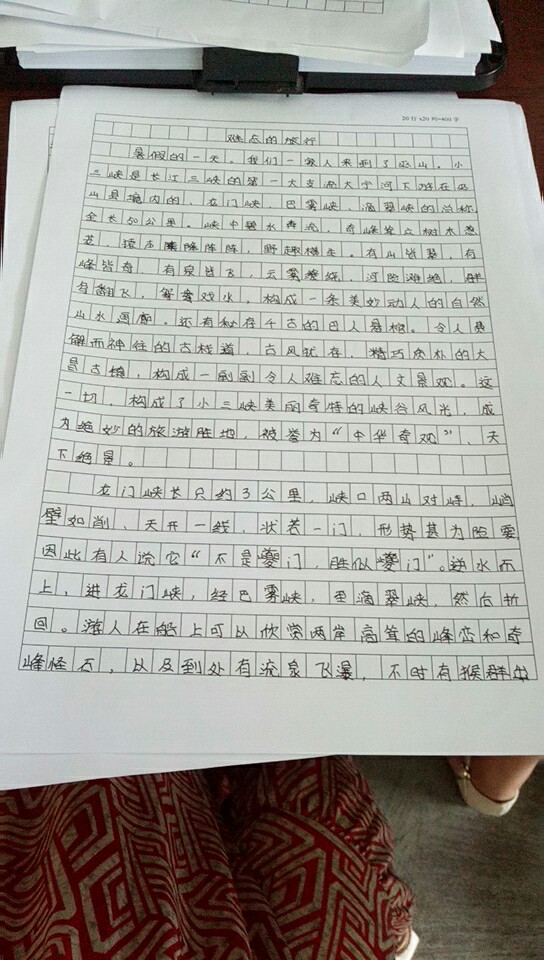 20行×20列=400字
难忘的旅行
暑假的一天。我们一家人来到了巫山。小
三峡是长江三峡的第一大支流大宁河下游在巫
山县境内的，龙门峡，巴雾峡，滴翠峡的总称
全长50公里。峡中碧水奔流，奇峰耸立树木葱
茏，猿声阵阵，野趣横生。有山皆翠，有
峰皆奇，有泉皆飞，云雾缭绕，河险滩绝，群
鸟翻飞，鸳鸯戏水，构成一条美妙动人的自然
山水画廊。还有秘存千古的巴人悬棺。令人费
解而神往的古栈道，古风犹存，精巧质朴的大
昌古镇，构成一副副令人难忘的人文景观。这
一切，构成了小三峡美丽奇特的峡谷风光，成
为绝妙的旅游胜地，被誉为“中华奇观”、天
下绝景。
龙门峡长只约3公里，峡口两山对峙，峭
壁如削、天开一线，状若一门，形势甚为险要
因此有人说它“不是夔门，胜似夔门”。逆水而
上，进龙门峡，经巴雾峡，至滴翠峡，然后折
回。游人在船上可以欣赏两岸高耸的峰峦和奇
峰怪石，以及到处有流泉飞瀑，不时有猴群出